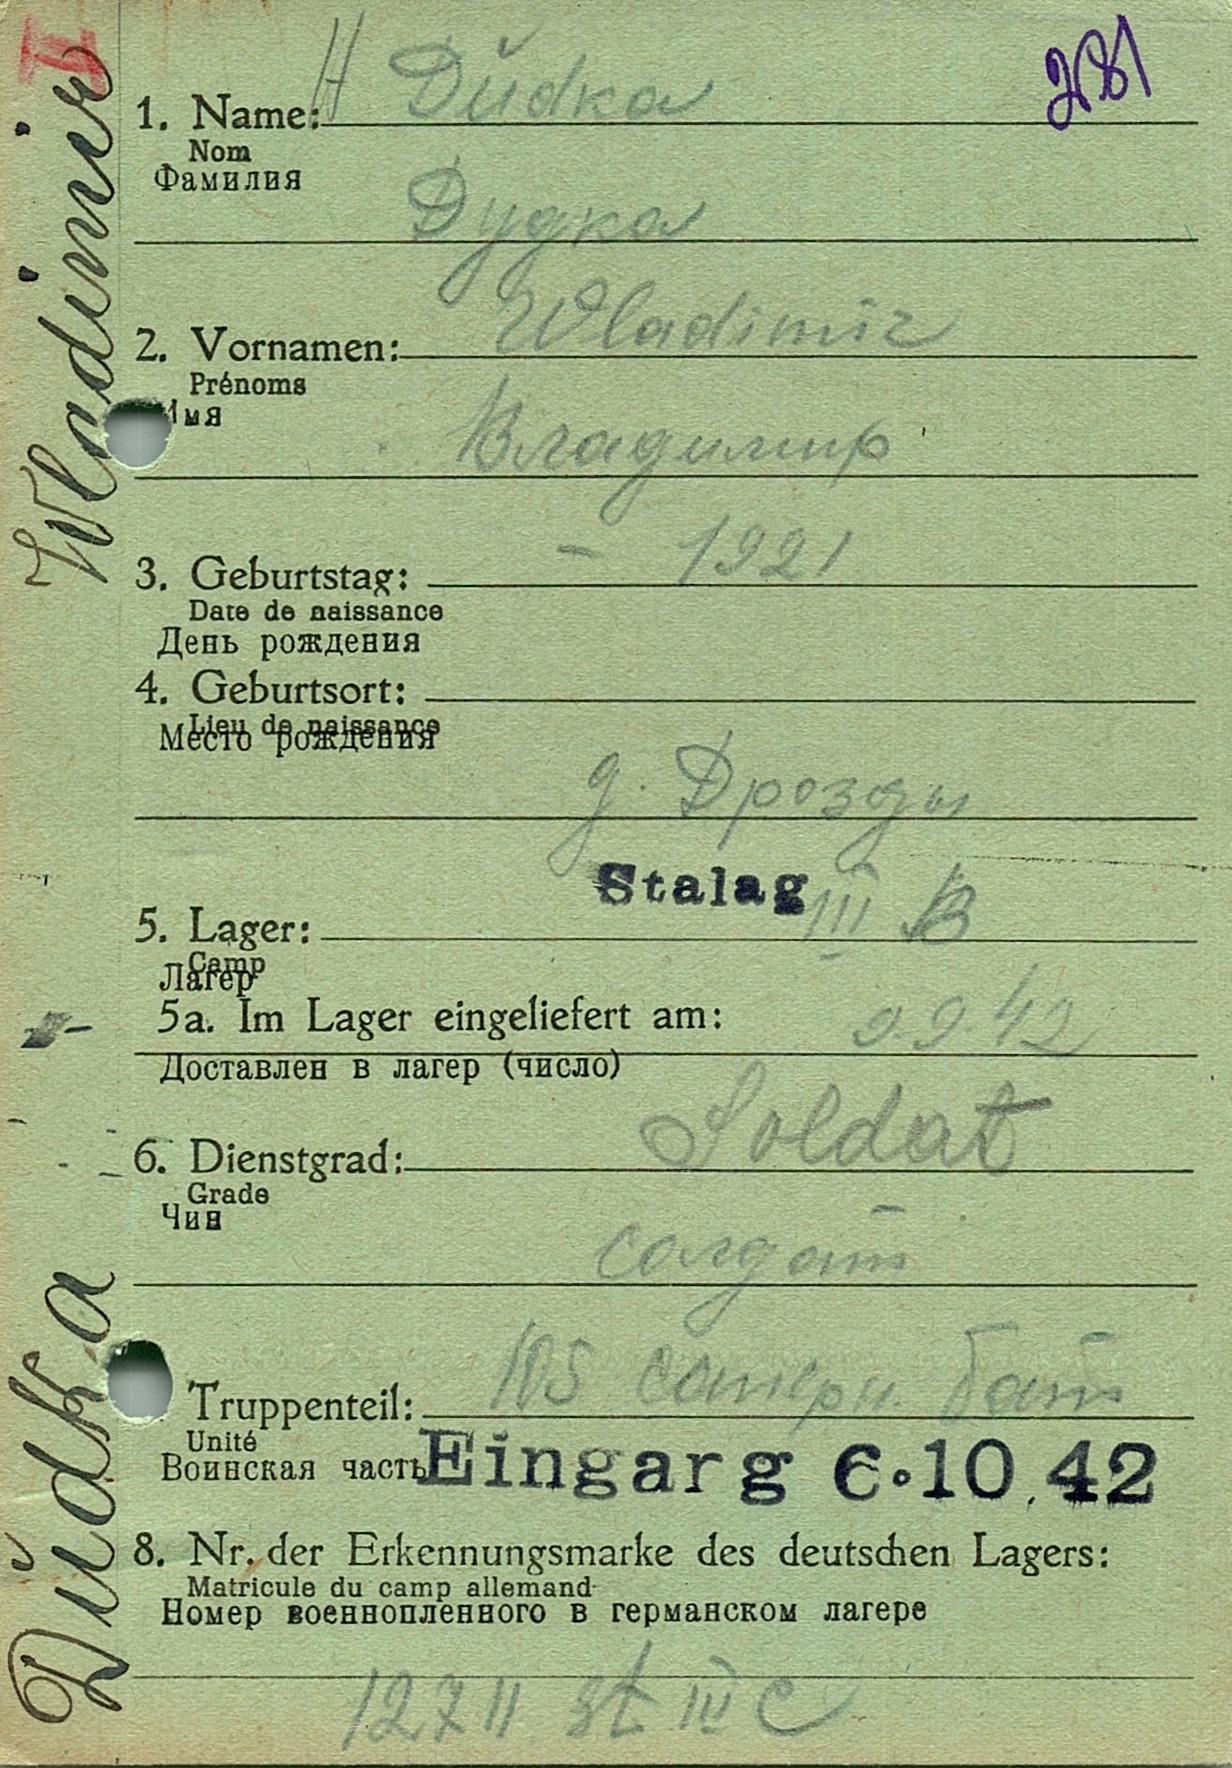 I
281
H Dŭdka
1. Name:
Nom
Фамилия
Дудка
Wladimir
2. Vornamen:
Prénoms
Имя
Владимир
- 1921
3. Geburtstag:
Date de naissance
День рождения
4. Geburtsort:
Lieu de naissance
Место рождения
д. Дрозды
Stalag III B
5. Lager:
Camp
Лагер
5a. Im Lager eingeliefert am: 9.9 42
Доставлен в лагер (число)
Soldat
6. Dienstgrad:
Grade
Чин
солдат
105 саперн. бат
Truppenteil:
Unité
Воинская часть
Eingarg 6.10.42
8. Nr. der Erkennungsmarke des deutschen Lagers:
Matricule du camp allemand
Номер военнопленного в германском лагере
12711 St III C
Dŭdka Wladimir